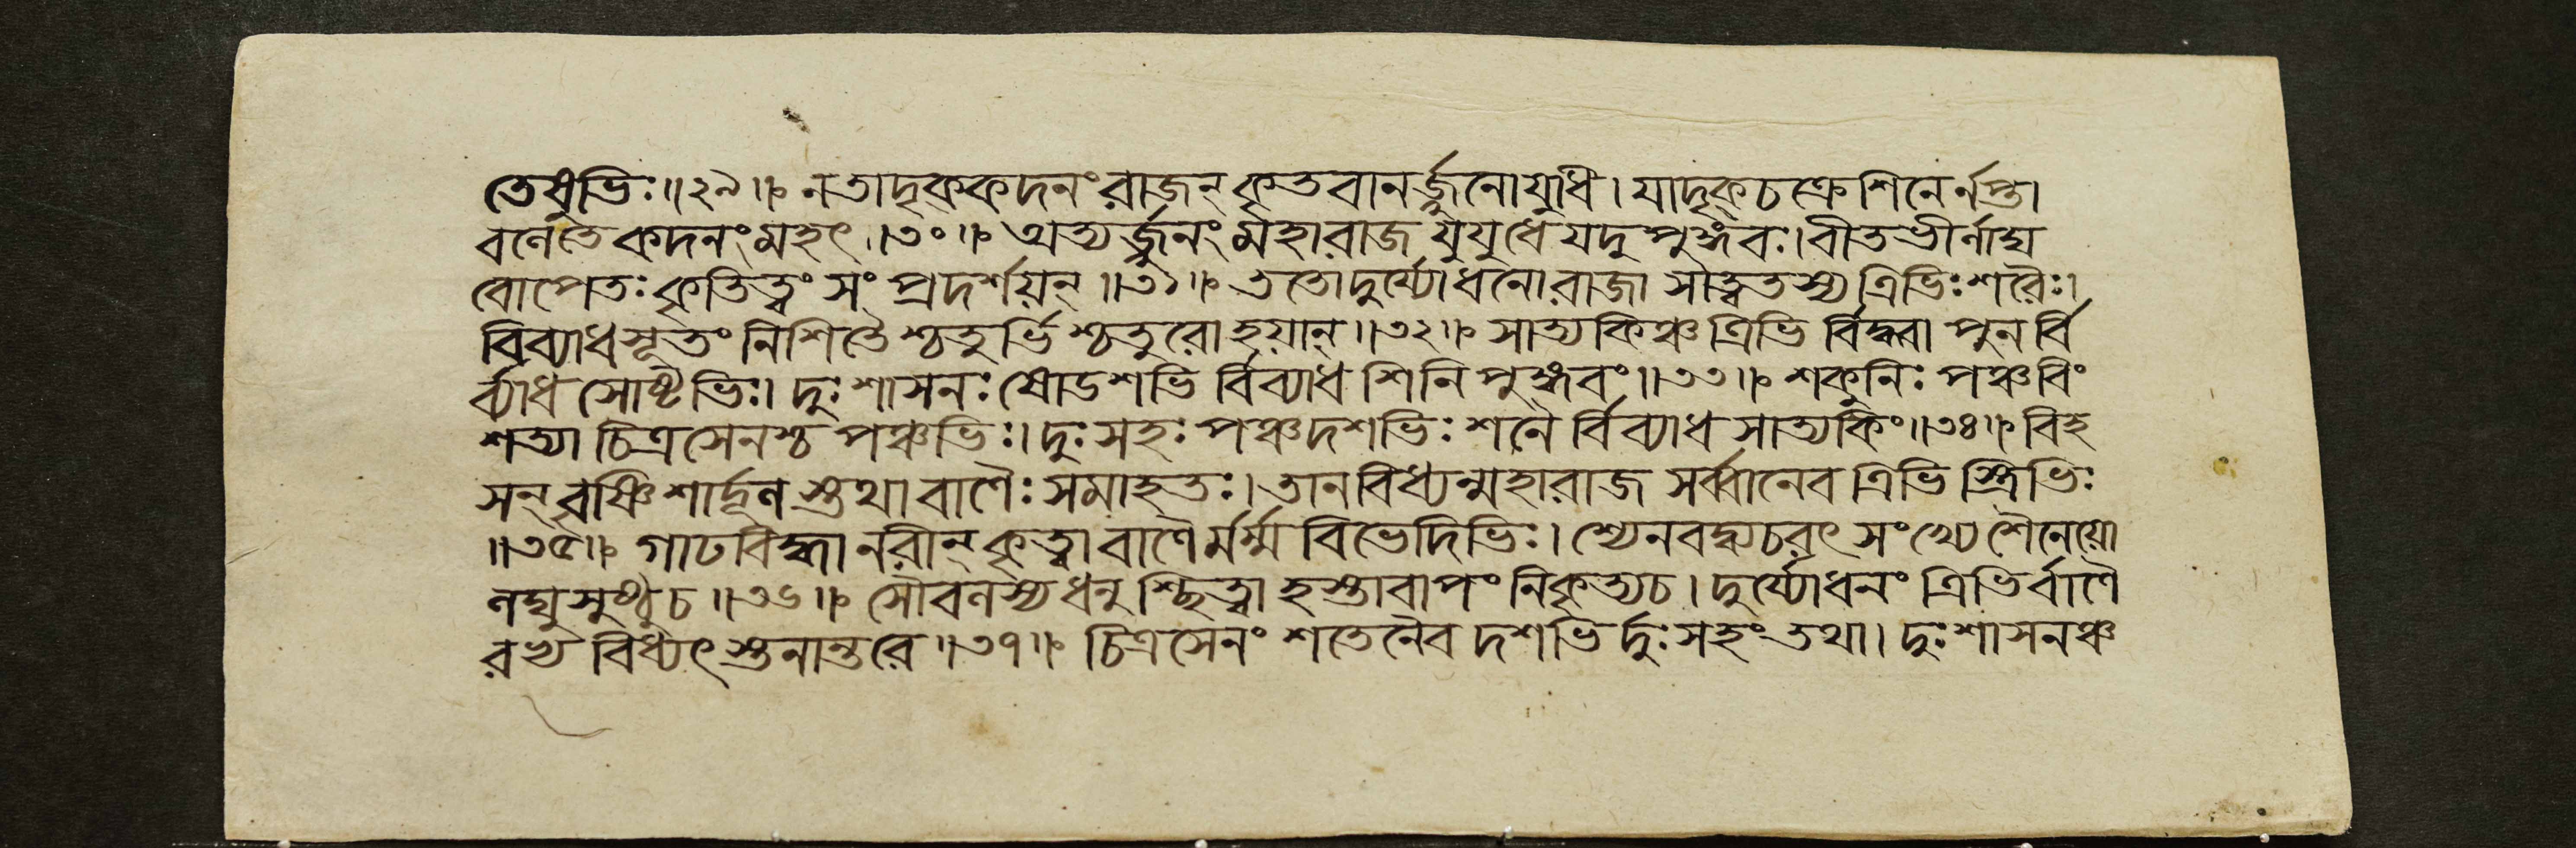 তেষুভিঃ॥২৯॥ ন তাদৃক্ কদনং রাজন্ কৃতবানর্জ্জুনো যুধি। যাদৃক্ চক্রে শিনের্নপ্তা
বলে তে কদনং মহৎ॥৩০॥ অত্যর্জ্জুনং মহারাজ যুযুধে যদুপুঙ্গবঃ। বীতভীর্লাঘ
বোপেতঃ কৃতিত্বং সংপ্রদর্শয়ন্॥৩১॥ ততো দুর্য্যোধনো রাজা সাত্বতস্য ত্রিভিঃ শরৈঃ।
বিব্যাধ সূতং নিশিতৈশ্চতুর্ভিশ্চতুরো হয়ান্॥৩২॥ সাত্যকিঞ্চ ত্রিভির্বিদ্ধ্বা পুনর্বি
র্ব্যাধ সোষ্টভিঃ। দুঃশাসনঃ ষোডশভির্বিব্যাধ শিনিপুঙ্গবং॥৩৩॥ শকুনিঃ পঞ্চবিং
শত্যা চিত্রসেনশ্চ পঞ্চভিঃ। দুঃসহঃ পঞ্চদশভিঃ শনৈর্বিব্যাধ সাত্যকিং॥৩৪॥ বিহ
সন্ বৃষ্ণিশার্দূলস্তথা বাণৈঃ সমাহতঃ। তানবিধ্যন্মহারাজ সর্ব্বানেব ত্রিভিস্ত্রিভিঃ
॥৩৫॥ গাঢবিদ্ধানরীন্ কৃত্বা বাণৈর্মর্ম্মবিভেদিভিঃ। শ্যেনবদ্ব্যচরৎ সংখ্যে শৈনেয়ো
লঘু সুষ্ঠু চ॥৩৬॥ সৌবলস্য ধনুশ্ছিত্বা হস্তাবাপং নিকৃত্য চ। দুর্য্যোধনং ত্রিভির্বাণৈ
রভ্যবিধ্যৎ স্তনান্তরে॥৩৭॥ চিত্রসেনং শতেনৈব দশভির্দুঃসহং তথা। দুঃশাসনঞ্চ